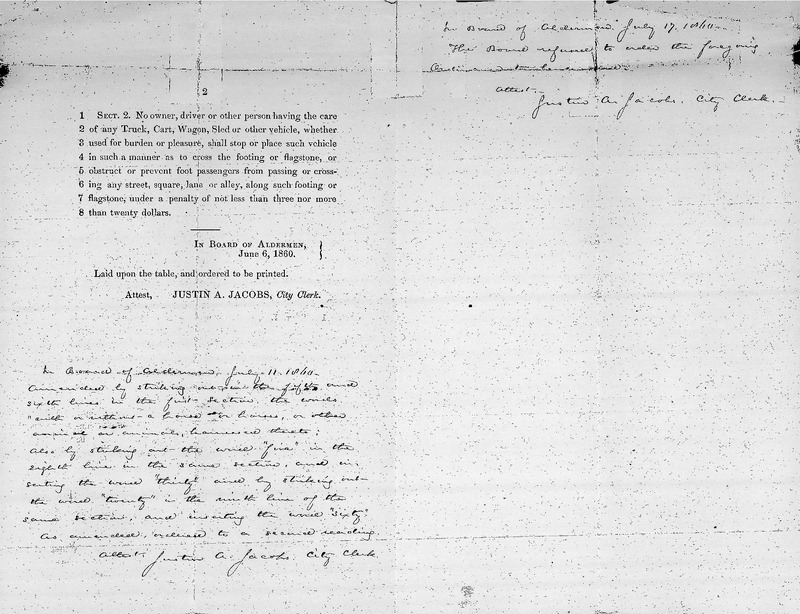 2
1 SECT. 2. No owner, driver or other person having the care
2 of any Truck, Cart, Wagon, Sled or other vehicle, whether
3 used for burden or pleasure, shall stop or place such vehicle
4 in such a manner as to cross the footing or flagstone, or
5 obstruct or prevent foot passengers from passing or cross-
6 ing any street, square, lane or alley, along such footing or
7 flagstone, under a penalty of not less than three nor more
8 than twenty dollars.
IN BOARD OF ALDERMEN,
June 6, 1860.
Laid upon the table, and ordered to be printed.
Attest, JUSTIN A. JACOBS, City Clerk.
In Board of Aldermen, July 11. 1860.
Amended by striking out in the fifth and
sixth lines in the first section, the words
"with or without a horse or horses, or other
animal or animals, harnessed thereto;
Also by striking out the word "five" in the
eighth line in the same section, and in-
serting the word "thirty" and by striking out
the word "twenty" in the ninth line of the
same section, and inserting the word "sixty"
As amended, ordered to a second reading
Attest, Justin A. Jacobs. City Clerk
In Board of Aldermen July 17. 1860.
The Board refused to order the foregoing
Ordinance to be
Attest.
Justin A. Jacobs. City Clerk.